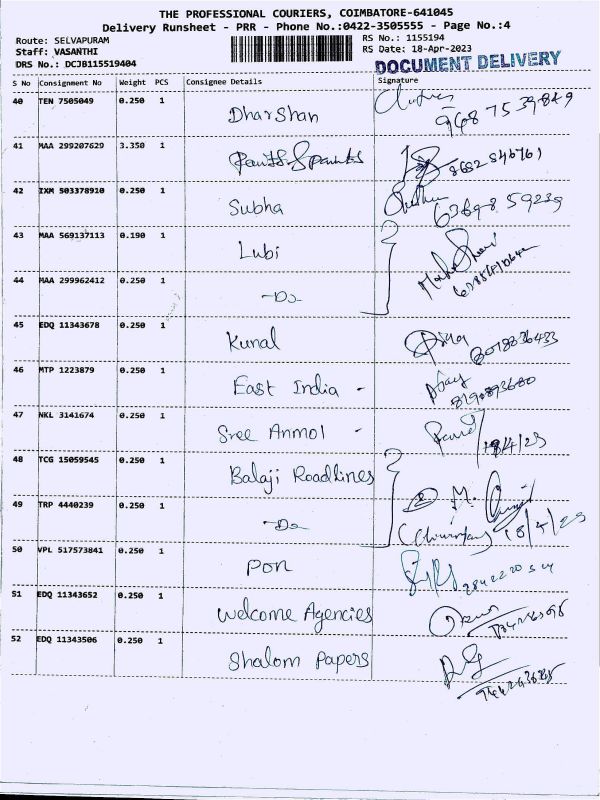 THE PROFESSIONAL COURIERS, COIMBATORE-641045
Delivery Runsheet - PRR - Phone No.:0422-3505555 - Page No.:4
Route: SELVAPURAM
RS No.: 1155194
Staff: VASANTHI
RS Date: 18-Apr-2023
DRS No.: DCJB115519404
DOCUMENT DELIVERY
S No Consignment No Weight PCS Consignee Details Signature
40 TEN 7505049 0.250 1 Dharshan
41 MAA 299207629 3.350 1
42 IXM 503378910 0.250 1 Subha 63698 59239
43 MAA 569137113 0.190 1 Lubi
44 MAA 299962412 0.250 1 -Do
45 EDQ 11343678 0.250 1 Kunal
46 MTP 1223879 0.250 1 East India -
47 NKL 3141674 0.250 1 Sree Anmol - 18/4/23
48 TCG 15059545 0.250 1 Balaji Roadlines
49 TRP 4440239 0.250 1 -Do 18/4/23
50 VPL 517573841 0.250 1 Pon
51 EDQ 11343652 0.250 1 Welcome Agencies
52 EDQ 11343506 0.250 1 Shalom Papers